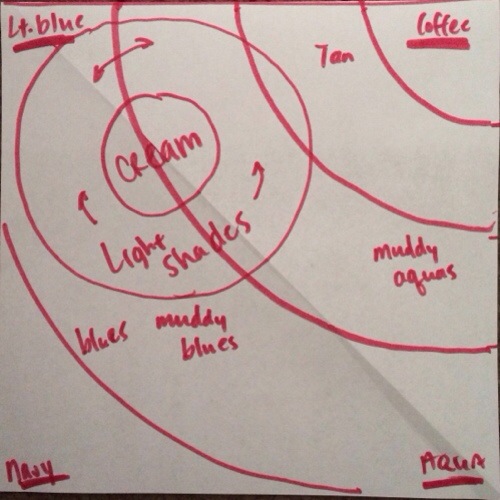 Lt. blue
Coffee
Tan
cream
Light
shades
muddy
aquas
blues
muddy
blues
Navy
AQUA